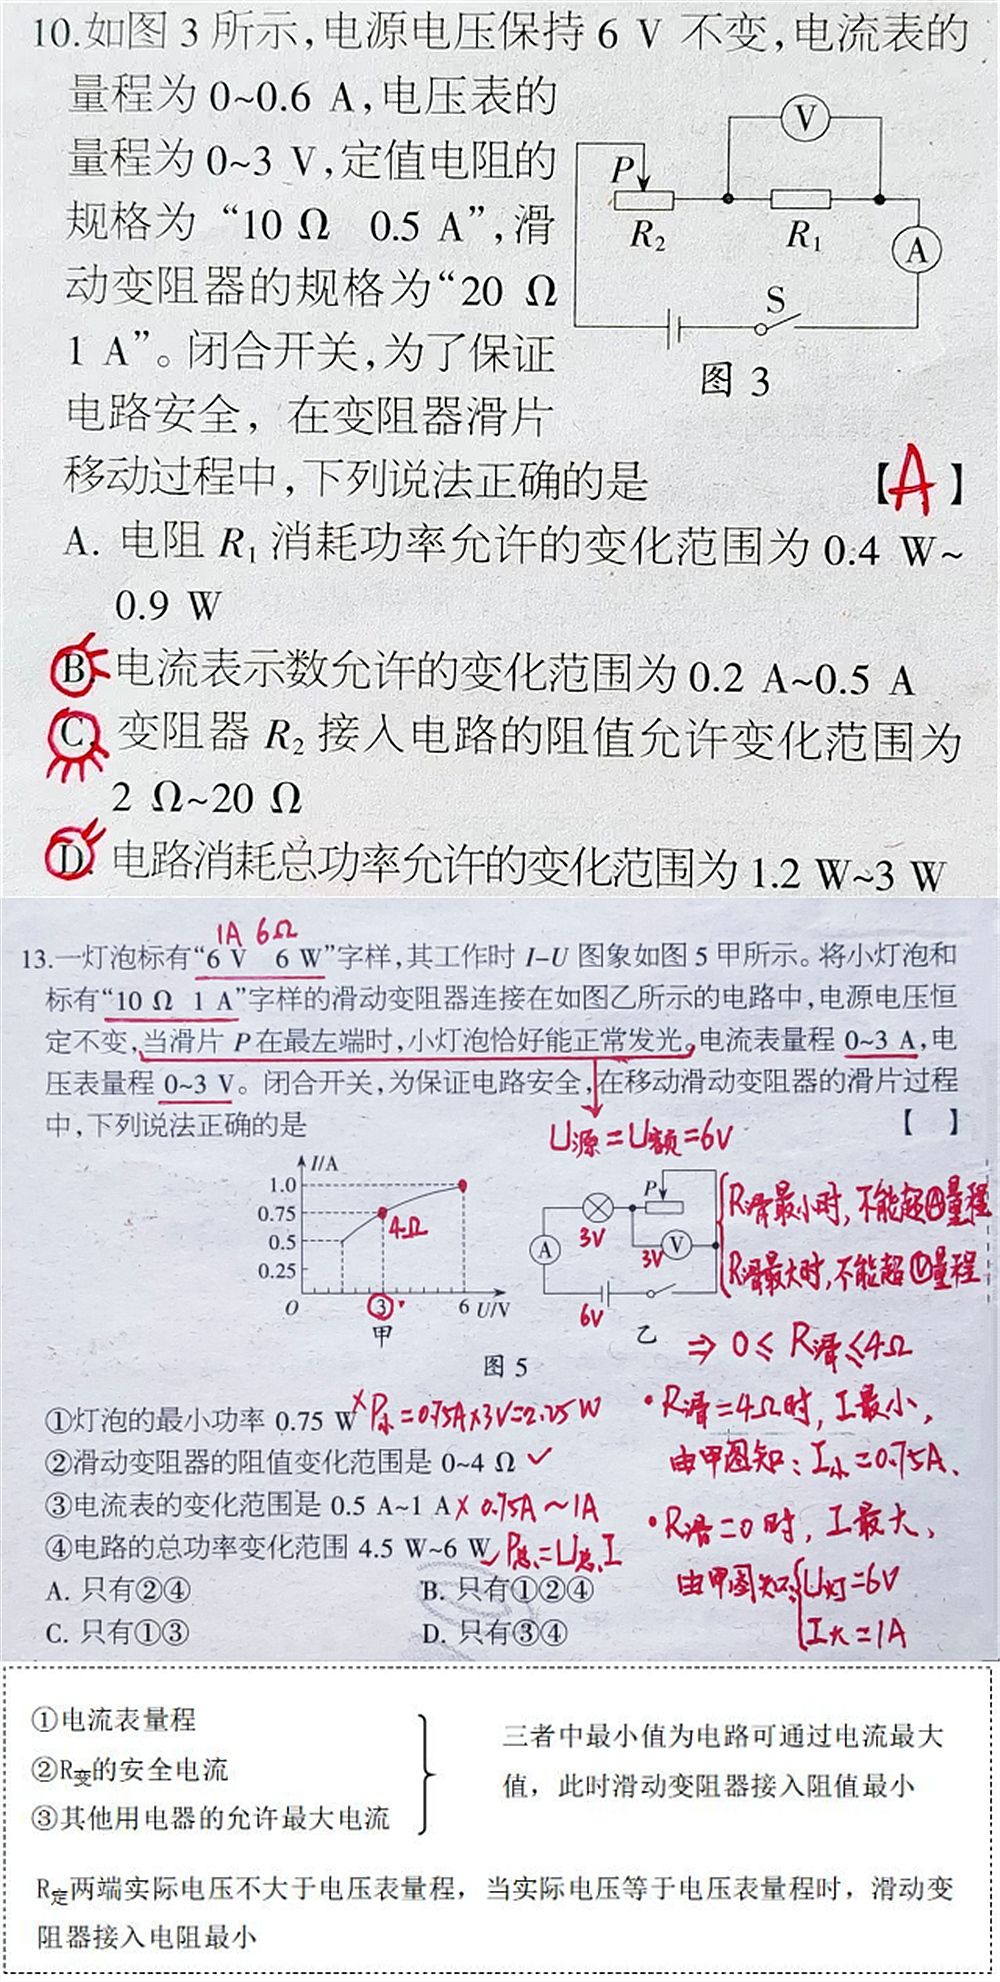 10.如图 3 所示,电源电压保持 6 V 不变,电流表的
量程为 0~0.6 A,电压表的
量程为 0~3 V,定值电阻的
规格为 “10 Ω 0.5 A”,滑
动变阻器的规格为“20 Ω
1 A”。闭合开关,为了保证
电路安全, 在变阻器滑片
移动过程中,下列说法正确的是 【A】
V
P
R₂
R₁
A
S
图 3
A. 电阻 R₁ 消耗功率允许的变化范围为 0.4 W~
0.9 W
B. 电流表示数允许的变化范围为 0.2 A~0.5 A
C. 变阻器 R₂ 接入电路的阻值允许变化范围为
2 Ω~20 Ω
D. 电路消耗总功率允许的变化范围为 1.2 W~3 W
1A 6Ω
13.一灯泡标有“6 V 6 W”字样,其工作时 I-U 图象如图 5 甲所示。将小灯泡和
标有“10 Ω 1 A”字样的滑动变阻器连接在如图乙所示的电路中,电源电压恒
定不变,当滑片 P 在最左端时,小灯泡恰好能正常发光。电流表量程 0~3 A,电
压表量程 0~3 V。闭合开关,为保证电路安全,在移动滑动变阻器的滑片过程
中,下列说法正确的是 【 】
U源=U额=6V
I/A
1.0
0.75
0.5
0.25
O
3
6 U/V
4Ω
甲
P
A
V
3V
3V
6V
乙
图 5
R滑最小时,不能超Ⓐ量程
R滑最大时,不能超Ⓥ量程
⇒ 0≤R滑≤4Ω
①灯泡的最小功率 0.75 W × P小=0.75A×3V=2.25W
②滑动变阻器的阻值变化范围是 0~4 Ω ✓
③电流表的变化范围是 0.5 A~1 A × 0.75A~1A
④电路的总功率变化范围 4.5 W~6 W ✓ P总=U总I
A. 只有②④ B. 只有①②④
C. 只有①③ D. 只有③④
·R滑=4Ω时,I最小,
由甲图知:I小=0.75A、
·R滑=0时,I最大,
由甲图知:{U灯=6V
I大=1A
①电流表量程
②R变的安全电流
③其他用电器的允许最大电流
三者中最小值为电路可通过电流最大
值,此时滑动变阻器接入阻值最小
R定两端实际电压不大于电压表量程,当实际电压等于电压表量程时,滑动变
阻器接入电阻最小